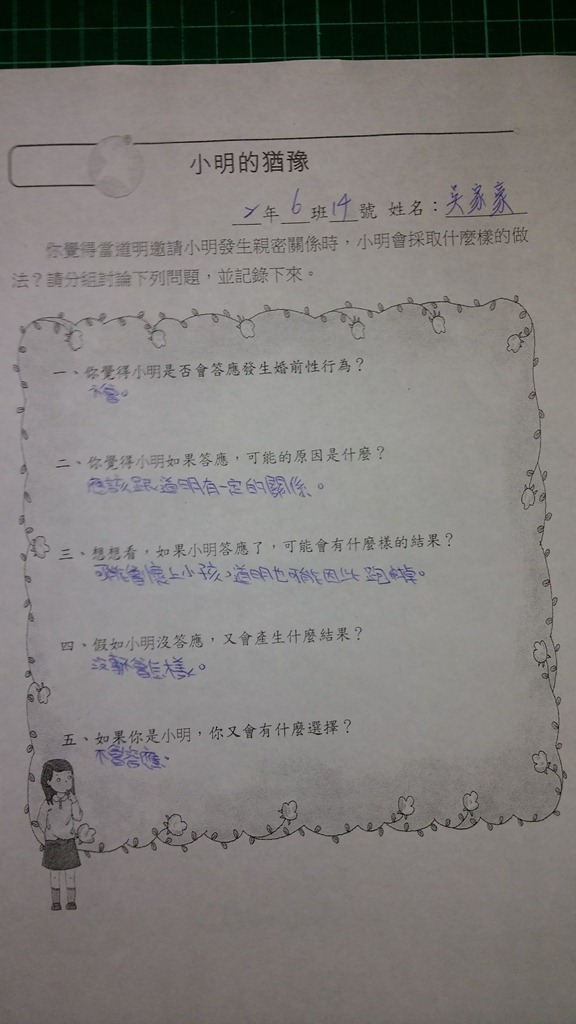 小明的猶豫
2年6班14號 姓名：吳家豪
你覺得當道明邀請小明發生親密關係時，小明會採取什麼樣的做
法？請分組討論下列問題，並記錄下來。
一、你覺得小明是否會答應發生婚前性行為？
不會。
二、你覺得小明如果答應，可能的原因是什麼？
應該跟道明有一定的關係。
三、想想看，如果小明答應了，可能會有什麼樣的結果？
可能會懷上小孩，道明也可能因此跑掉。
四、假如小明沒答應，又會產生什麼結果？
不會怎樣。
五、如果你是小明，你又會有什麼選擇？
不會答應。